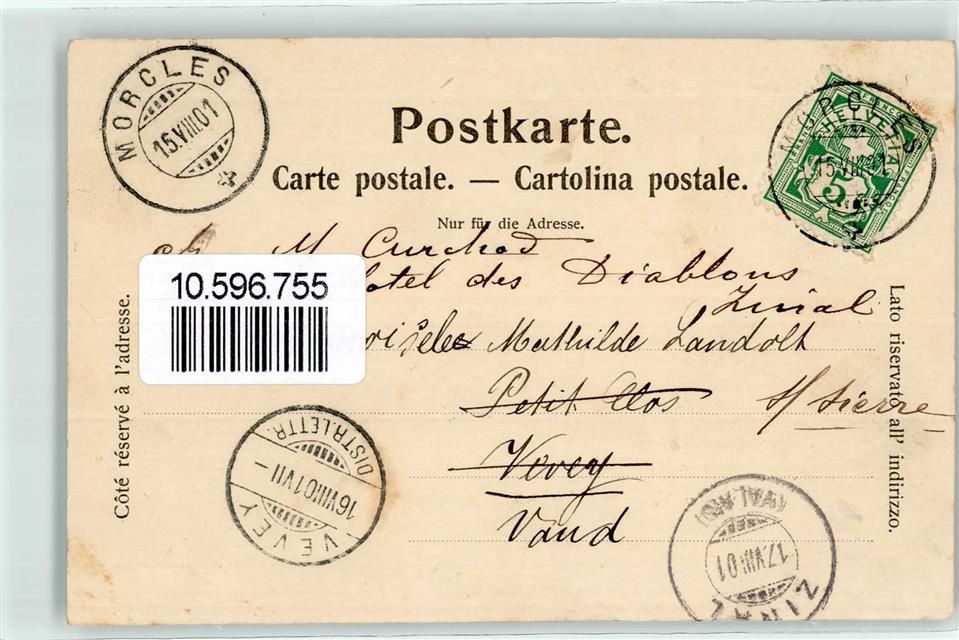 MORCLES
15.VIII.01
Postkarte.
Carte postale. — Cartolina postale.
Nur für die Adresse.
MORCLES
15.VIII.01
HELVETIA
FRANCO
5
M. Curchod
Hotel des Diablons
Zinal
10.596.755
Mathilde Landolt
Petit Clos
s/ Sierre
Vevey
Vaud
Côté réservé à l'adresse.
Lato riservato all' indirizzo.
VEVEY
DISTR. LETTR.
16.VIII.01.VII–
ZINAL
(VALAIS)
17.VIII.01